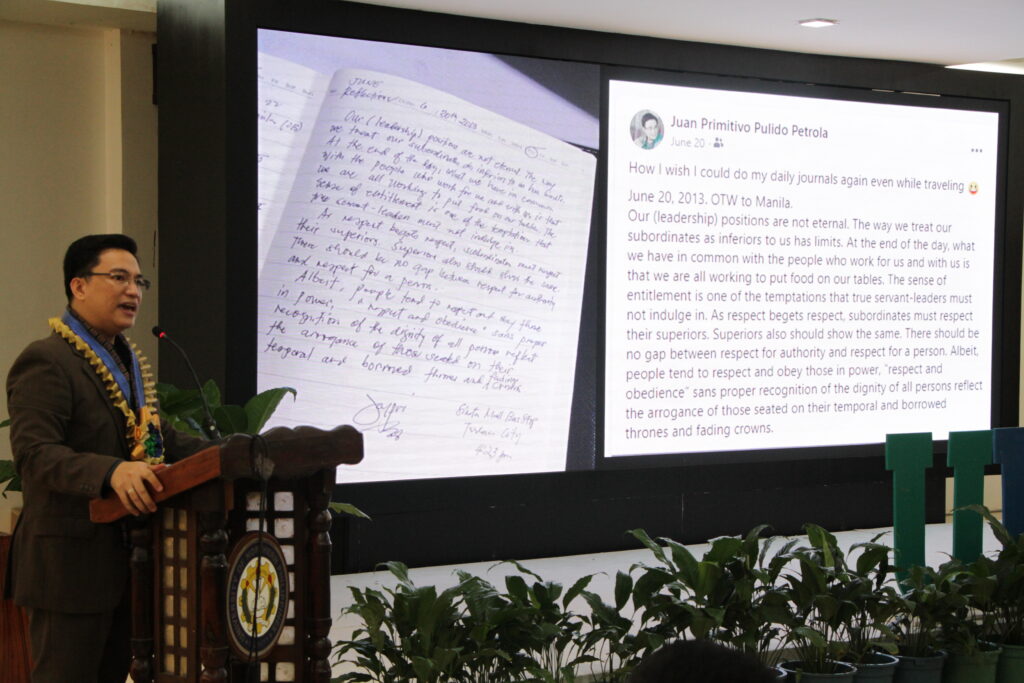 JUNE
Reflections
Our (leadership) positions are not eternal. The way
we treat our subordinates as inferiors to us has limits.
At the end of the day, what we have in common
with the people who work for us and with us is that
we are all working to put food on our tables. The
sense of entitlement is one of the temptations that
servant-leaders must not indulge in.
As respect begets respect, subordinates must respect
their superiors. Superiors also should show the same.
There should be no gap between respect for authority
and respect for a person.
Albeit, people tend to respect and obey those
in power, "respect and obedience" sans proper
recognition of the dignity of all persons reflect
the arrogance of those seated on their
temporal and borrowed thrones and fading crowns
4:23 pm
Juan Primitivo Pulido Petrola
June 20 ·
How I wish I could do my daily journals again even while traveling 😃
June 20, 2013. OTW to Manila.
Our (leadership) positions are not eternal. The way we treat our
subordinates as inferiors to us has limits. At the end of the day, what
we have in common with the people who work for us and with us is
that we are all working to put food on our tables. The sense of
entitlement is one of the temptations that true servant-leaders must
not indulge in. As respect begets respect, subordinates must respect
their superiors. Superiors also should show the same. There should be
no gap between respect for authority and respect for a person. Albeit,
people tend to respect and obey those in power, "respect and
obedience" sans proper recognition of the dignity of all persons reflect
the arrogance of those seated on their temporal and borrowed
thrones and fading crowns.